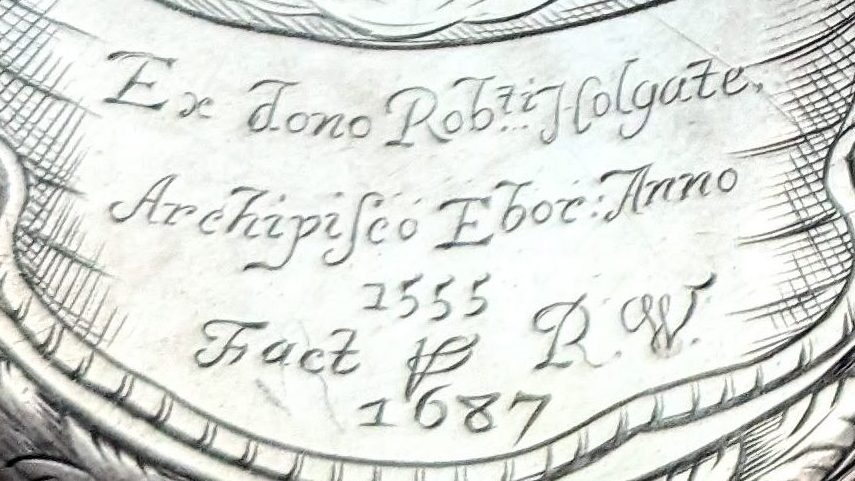 Ex dono Rob:ti Holgate,
Archipiſco Eboc: Anno
1555
Fact ⅌ R.W.
1687